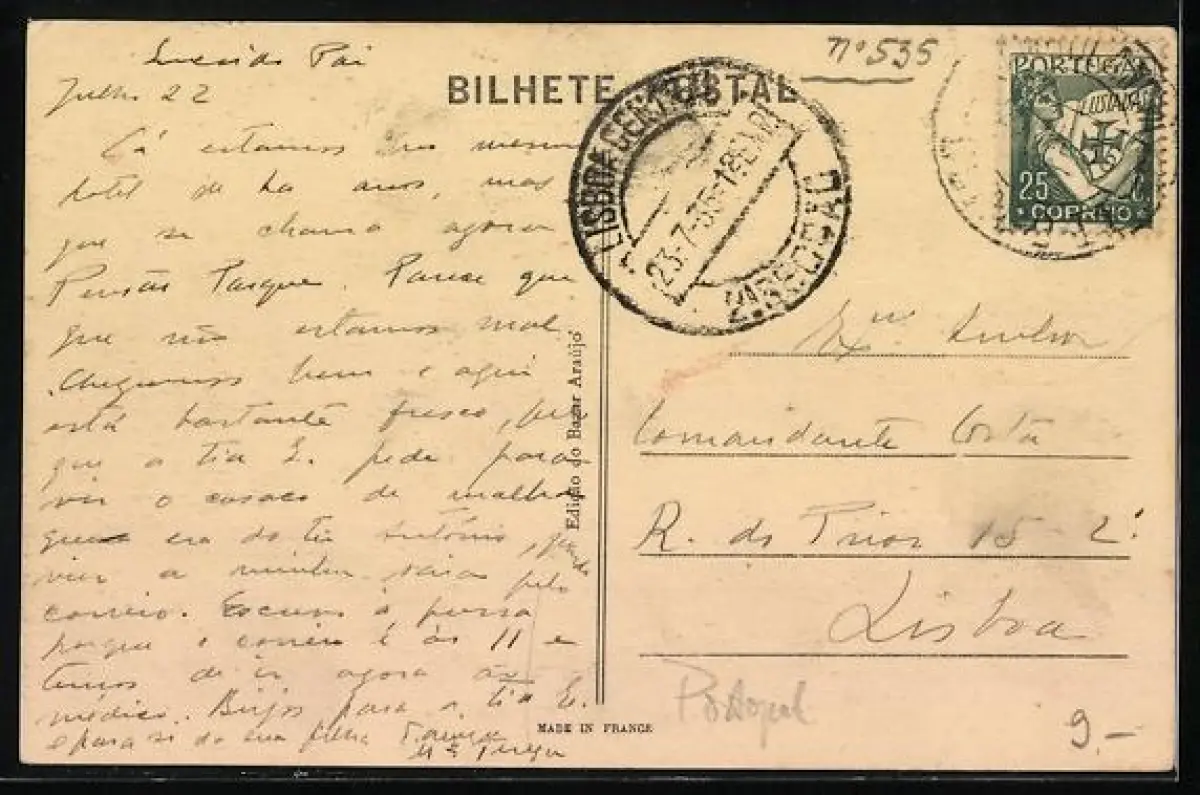 Querido Pai
Julho 22
Cá estamos no mesmo
hotel de ha anos, mas
que se chama agora
Pensão Parque. Parece que
que não estamos mal.
Chegamos bem e aqui
está bastante fresco, por
que a tia E. pede para
vir o casaco de malha
que era do tio António, quando
vier a minha saia pelo
correio. Escrevo á pressa
porque o correio é ás 11 e
temos de ir agora ao
médico. Beijos para a tia E.
e para si da sua filha
Mª Teresa
BILHETE POSTAL
nº 535
LISBOA CENTRAL
23-7-35-18
2ª SECÇÃO
PORTUGAL
LUSIADAS
25 C.
CORREIO
Edição do Bazar Araújo
MADE IN FRANCE
Exmo Senhor
Comandante Costa
R. do Prior 15-2º
Lisboa
Portugal
9.-